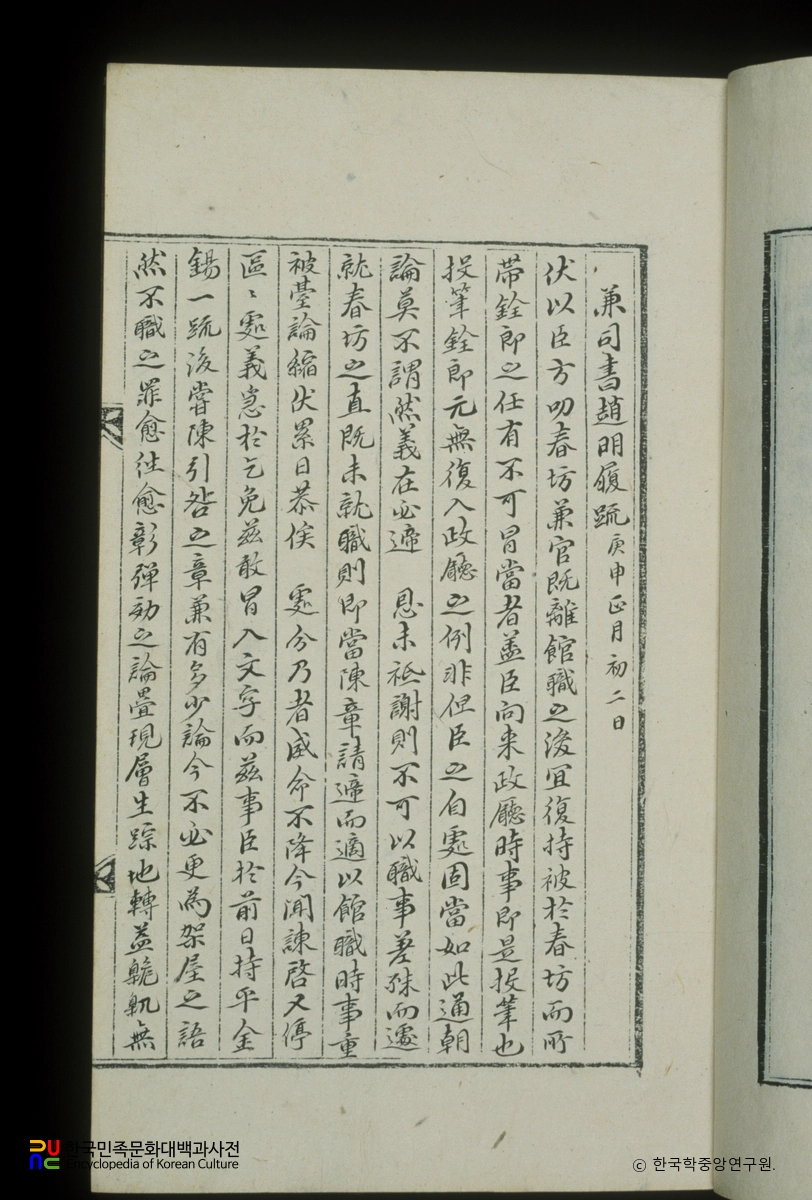 兼司書趙明履疏 庚申正月初二日
伏以臣方叨春坊兼官旣離館職之後宜復持被於春坊而所
帶銓郎之任有不可冒當者盖臣向來政廳時事卽是投筆也
投筆銓郎元無復入政廳之例非但臣之自處固當如此通朝
論莫不謂然義在必遞 恩未祗謝則不可以職事差殊而遽
就春坊之直旣未就職則卽當陳章請遞而適以館職時事重
被臺論縮伏累日恭俟 處分乃者威命不降今聞諫啓又停
區〻處義急於乞免玆敢冒入文字而玆事臣於前日持平金
錫一疏後嘗陳引咎之章兼有多少論今不必更爲架屋之語
然不職之罪愈往愈彰彈劾之論疊現層生踪地轉益臲卼無
한국민족문화대백과사전
Encyclopedia of Korean Culture
ⓒ 한국학중앙연구원.